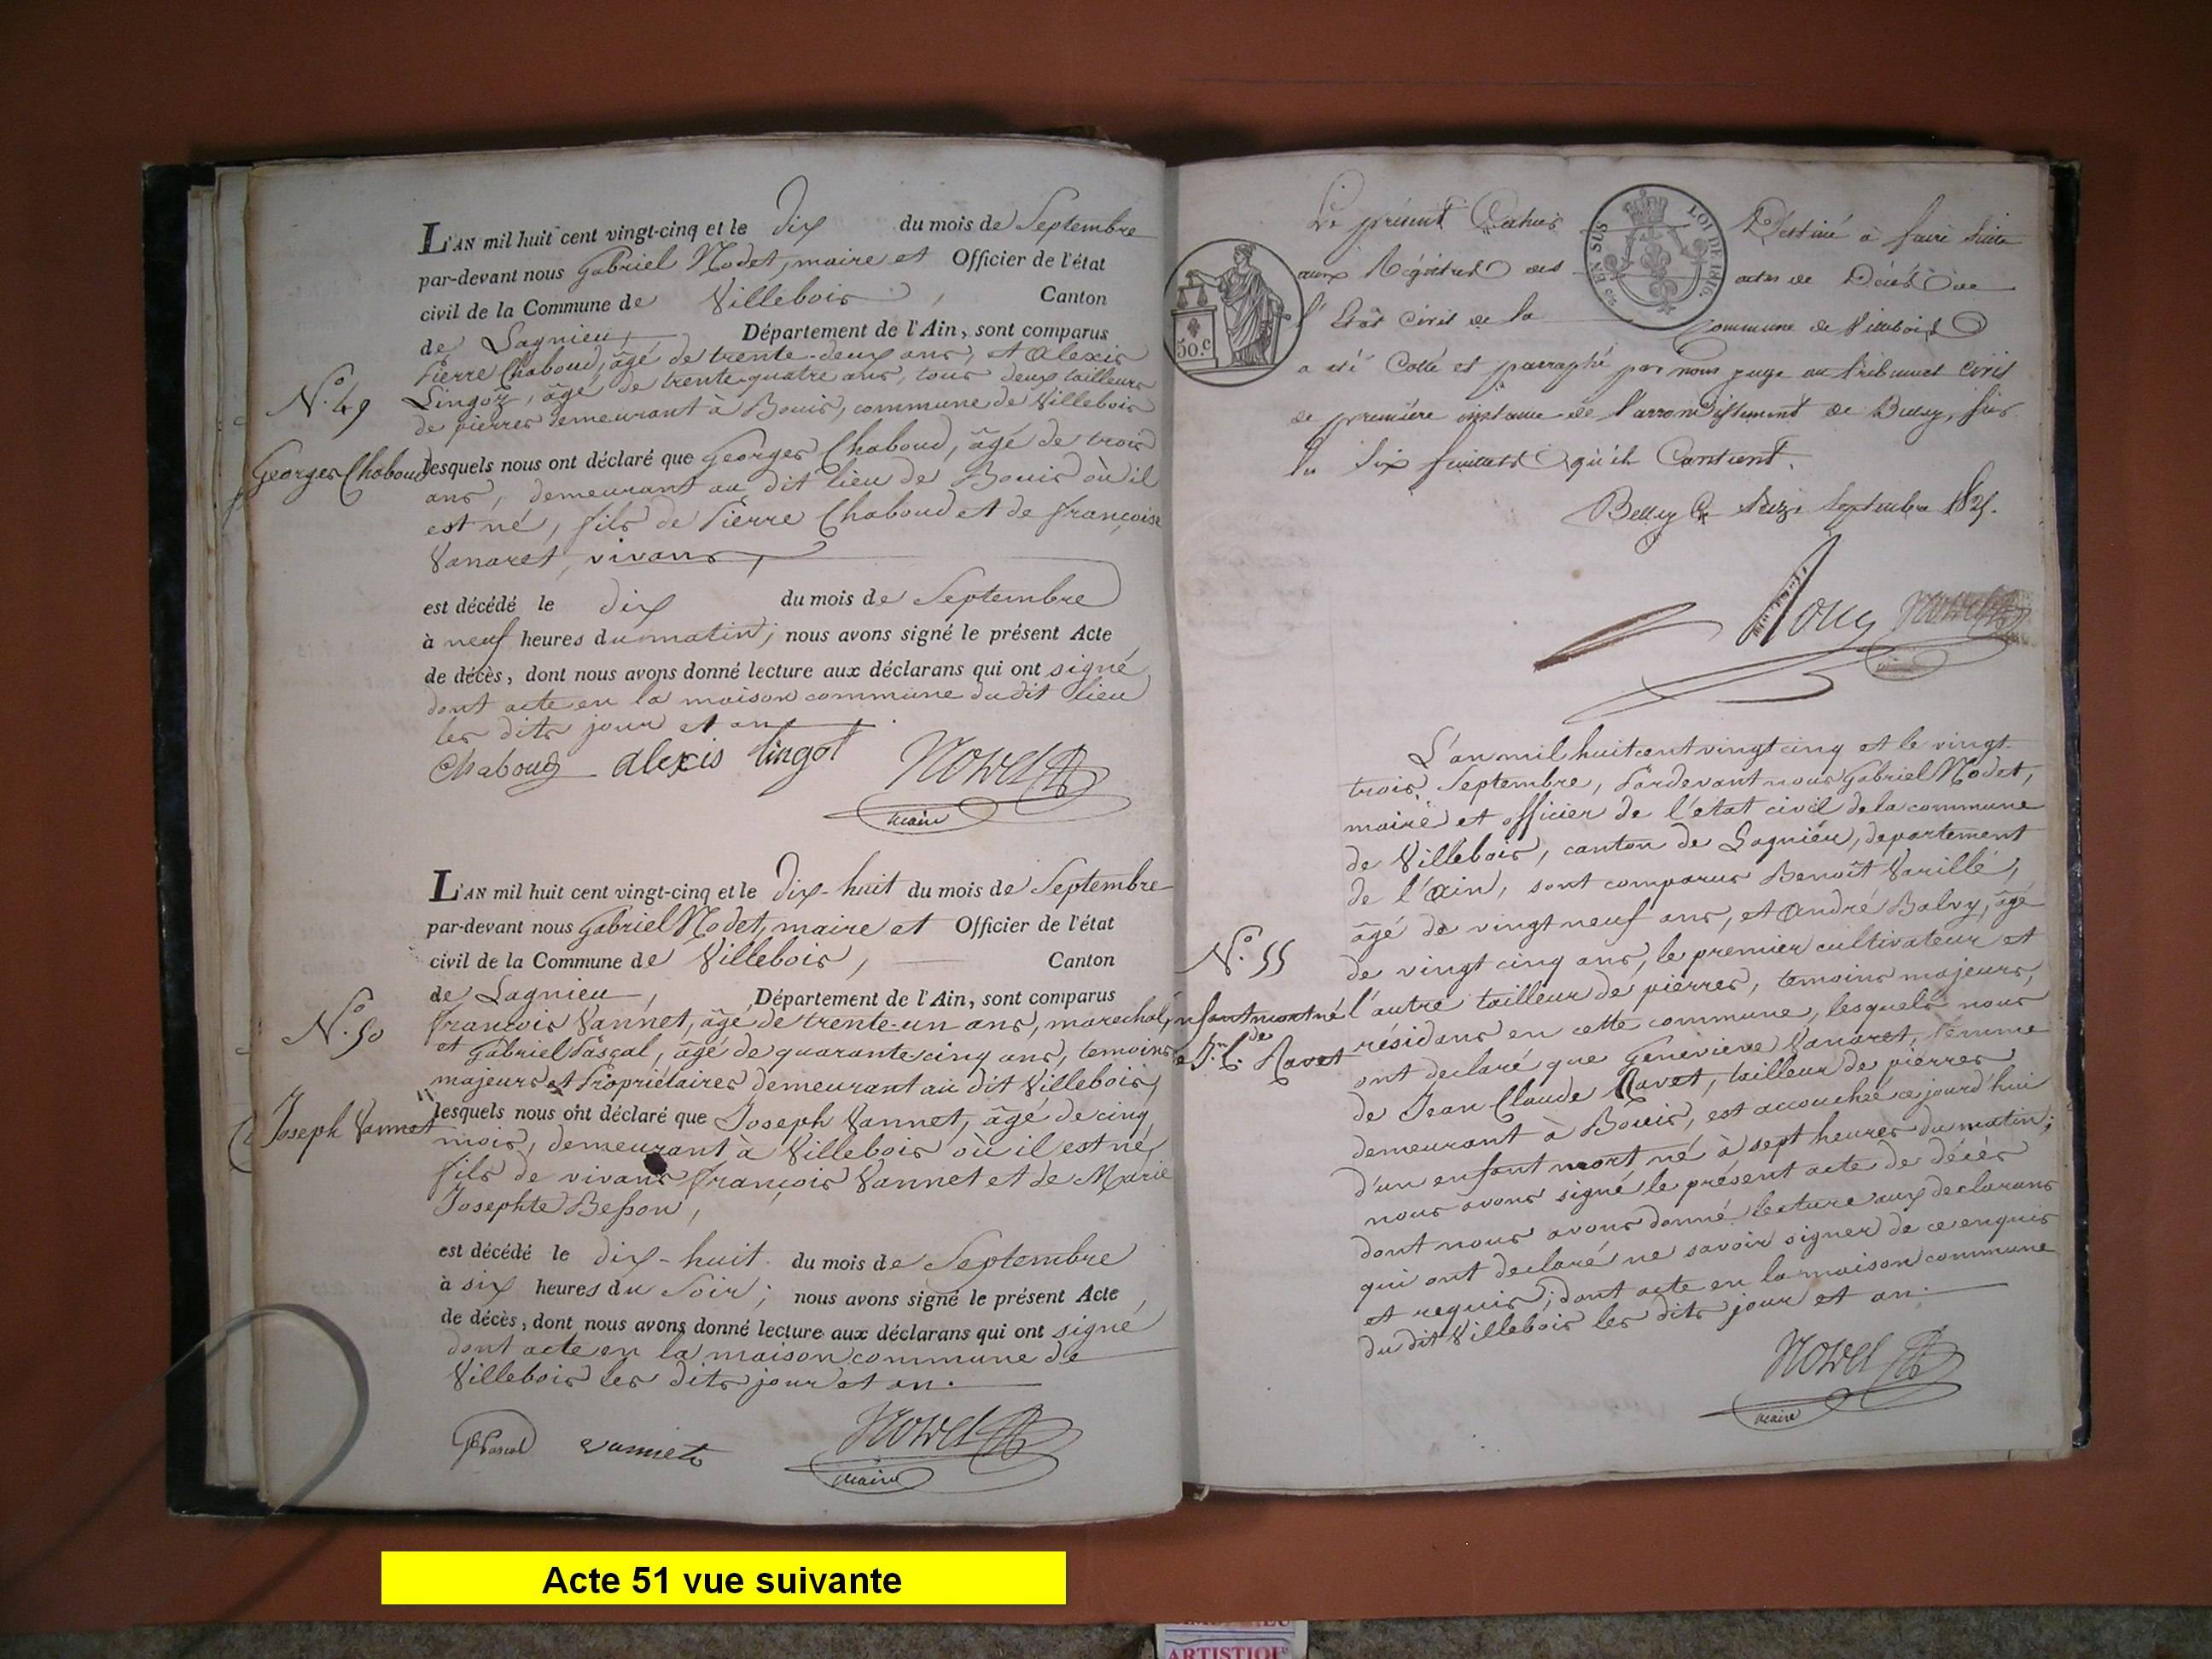 L'AN mil huit cent vingt-cinq et le dix du mois de Septembre
par-devant nous Gabriel Nodet, maire et Officier de l'état
civil de la Commune de Villebois, Canton
de Lagnieu, Département de l'Ain, sont comparus
Pierre Chaboud, âgé de trente-deux ans, et Alexis
Lingot, âgé de trente quatre ans, tous deux tailleurs
de pierres demeurant à Bouis, commune de Villebois
N.o 49
Georges Chaboud
lesquels nous ont déclaré que Georges Chaboud, âgé de trois
ans, demeurant au dit lieu de Bouis où il
est né, fils de Pierre Chaboud et de françoise
Vanaret, vivans,
est décédé le dix du mois de Septembre
à neuf heures du matin; nous avons signé le présent Acte
de décès, dont nous avons donné lecture aux déclarans qui ont signé
dont acte en la maison commune du dit lieu
les dits jour et an
Chaboud alexis lingot
maire
L'AN mil huit cent vingt-cinq et le dix-huit du mois de Septembre
par-devant nous Gabriel Nodet, maire et Officier de l'état
civil de la Commune de Villebois, Canton
de Lagnieu, Département de l'Ain, sont comparus
françois Vannet, âgé de trente-un ans, marechal,
et Gabriel Pascal, âgé de quarante cinq ans, temoins
majeurs et Propriétaires demeurant au dit Villebois,
N.o 50
Joseph Vannet
lesquels nous ont déclaré que Joseph Vannet, âgé de cinq
mois, demeurant à Villebois où il est né,
fils de vivans françois Vannet et de Marie
Josephte Besson,
est décédé le dix-huit du mois de Septembre
à six heures du Soir; nous avons signé le présent Acte
de décès, dont nous avons donné lecture aux déclarans qui ont signé
dont acte en la maison commune de
Villebois les dits jour et an.
Pascal vannet
maire
Le présent Cahier Destiné à faire Suite
aux Régistres des actes de Décès de
l'État Civil de la Commune de Villebois
a été Cotté et parraphé par nous juge au tribunal Civil
de première instance de l'arrondissement de Belley, sur
les Six feuillets qu'il Contient.
Belley le Seize Septembre 1825.
50.c
EN SUS
LOI DE 1816.
L'an mil huit cent vingt cinq et le vingt-
trois Septembre, Pardevant nous Gabriel Nodet,
maire et officier de l'état civil de la commune
de Villebois, canton de Lagnieu, departement
de l'ain, sont comparus Benoît Varille,
âgé de vingt neuf ans, et André Balvy, âgé
de vingt cinq ans, le premier cultivateur et
l'autre tailleur de pierres, temoins majeurs,
résidans en cette commune, lesquels nous
ont declaré que Geneviève Vanaret, femme
de Jean Claude Ravet, tailleur de pierres
demeurant à Bouis, est accouchée ce jourd'hui
d'un enfant mort né à sept heures du matin;
nous avons signé le présent acte de décès
dont nous avons donné lecture aux declarans
qui ont declaré ne savoir signer de ce enquis
et requis; dont acte en la maison commune
du dit Villebois les dits jour et an.
N.o 55
enfant mort né
de J.n C.de Ravet
maire
Acte 51 vue suivante
ARTISTIQU